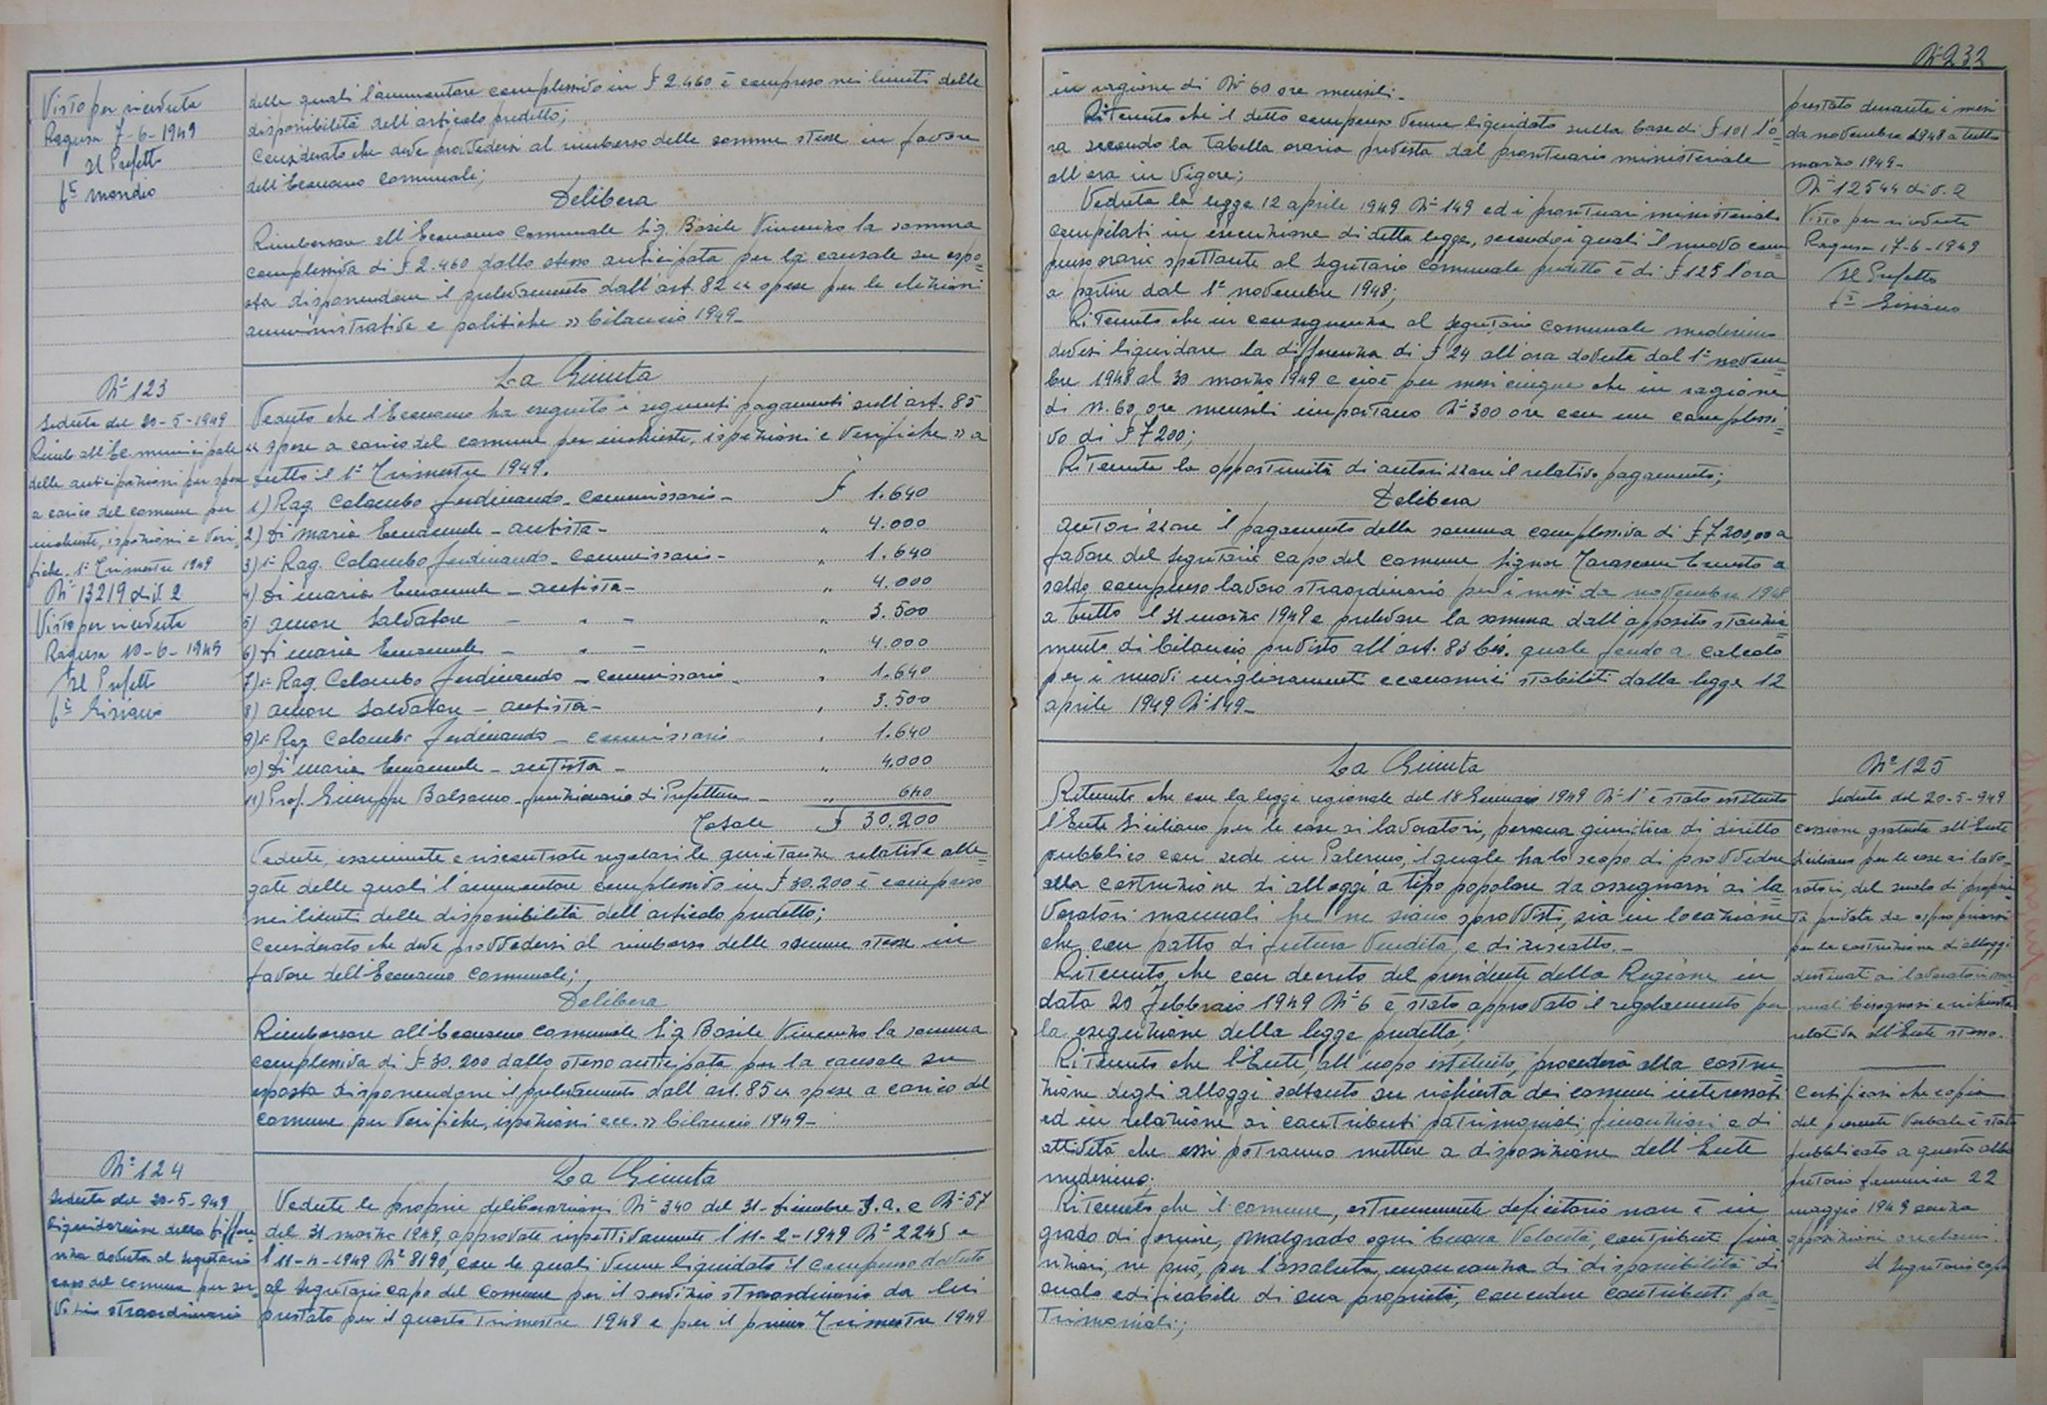 Visto per ricevuta
Ragusa 7-6-1949
Il Prefetto
fto Mondio
delle quali l'ammontare complessivo in £ 2.460 è compreso nei limiti delle
disponibilità dell'articolo predetto;
Considerato che deve provvedersi al rimborso delle somme stesse in favore
dell'Economo Comunale;
Delibera
Rimborsare all'Economo Comunale Sig. Basile Vincenzo la somma
complessiva di £ 2.460 dallo stesso anticipata per la causale su espo=
sta disponendone il prelevamento dall'art. 82 « spese per le elezioni
amministrative e politiche » bilancio 1949_
N° 123
Seduta del 20-5-1949
Rimb. all'Ec. municipale
delle anticipazioni per spese
a carico del comune per
inchieste, ispezioni e veri-
fiche_ 1° Trimestre 1949
N° 13219 div. 2
Visto per ricevuta
Ragusa 10-6-1949
Il Prefetto
fto Gisiano
La Giunta
Veduto che l'Economo ha eseguito i seguenti pagamenti sull'art. 85
« spese a carico del comune per inchieste, ispezioni e verifiche » a
tutto il 1° Trimestre 1949.
1) Rag. Colombo Ferdinando_ commissario_ £ 1.640
2) Di Maria Emanuele_ autista_ " 4.000
3) " Rag. Colombo Ferdinando_ commissario_ " 1.640
4) Di Maria Emanuele_ autista_ " 4.000
5) Amore Salvatore _ " _ " 3.500
6) Di Maria Emanuele _ " _ " 4.000
7) " Rag. Colombo Ferdinando_ commissario_ " 1.640
8) Amore Salvatore_ autista_ " 3.500
9) " Rag. Colombo Ferdinando_ commissario_ " 1.640
10) Di Maria Emanuele_ autista_ " 4.000
11) Prof. Giuseppe Balsamo_ funzionario di Prefettura_ " 640
Totale £ 30.200
Vedute, esaminate e riscontrate regolari le quietanze relative alle=
gate delle quali l'ammontare complessivo in £ 30.200 è compreso
nei limiti delle disponibilità dell'articolo predetto;
Considerato che deve provvedersi al rimborso delle somme stesse in
favore dell'Economo Comunale;
Delibera
Rimborsare all'Economo Comunale Sig. Basile Vincenzo la somma
complessiva di £ 30.200 dallo stesso anticipata per la causale su
esposta disponendone il prelevamento dall'art. 85 « spese a carico del
comune per verifiche, ispezioni ecc. » bilancio 1949_
N° 124
Seduta del 20-5-949
Liquidazione della differe
nza dovuta al segretario
capo del comune per ser=
vizio straordinario
La Giunta
Vedute le proprie deliberazioni N° 340 del 31- dicembre s.a. e N° 57
del 31 marzo 1949, approvate rispettivamente l'11-2-1949 N° 2245 e
l'11-4-1949 N° 8190, con le quali venne liquidato il compenso dovuto
al segretario capo del comune per il servizio straordinario da lui
prestato per il quarto Trimestre 1948 e per il primo Trimestre 1949
N° 232
in ragione di N° 60 ore mensili_
Ritenuto che il detto compenso venne liquidato sulla base di £ 101 l'o=
ra secondo la tabella oraria prevista dal prontuario ministeriale
all'ora in vigore;
Veduta la legge 12 aprile 1949 N° 149 ed i prontuari ministeriali
compilati in esecuzione di detta legge, secondo i quali il nuovo com
penso orario spettante al segretario comunale predetto è di £ 125 l'ora
a partire dal 1° novembre 1948;
Ritenuto che in conseguenza al segretario comunale medesimo
devesi liquidare la differenza di £ 24 all'ora dovuta dal 1° novem=
bre 1948 al 30 marzo 1949 e cioè per mesi cinque che in ragione
di N. 60 ore mensili importano N° 300 ore con un complessi=
vo di £ 7200;
Ritenuta la opportunità di autorizzare il relativo pagamento;
Delibera
Autorizzare il pagamento della somma complessiva di £ 7200,00 a
favore del segretario capo del comune Signor Tarascone Ernesto a
saldo compenso lavoro straordinario per i mesi da novembre 1948
a tutto il 31 marzo 1949 e prelevare la somma dall'apposito stanzia=
mento di bilancio previsto all'art. 83 bis. quale fondo a calcolo
per i nuovi miglioramenti economici stabiliti dalla legge 12
aprile 1949 N° 149_
prestato durante i mesi
da novembre 1948 a tutto
marzo 1949_
N° 12544 div. 2
Visto per ricevuta
Ragusa 17-6-1949
Il Prefetto
fto Gisiano
La Giunta
Ritenuto che con la legge regionale del 18 Gennaio 1949 N° 1° è stato istituito
l'Ente Siciliano per le case ai lavoratori, persona giuridica di diritto
pubblico con sede in Palermo, il quale ha lo scopo di provvedere
alla costruzione di alloggi a tipo popolare da assegnarsi ai la
voratori manuali che ne siano sprovvisti, sia in locazione
che con patto di futura vendita e di riscatto._
Ritenuto che con decreto del presidente della Regione in
data 20 Febbraio 1949 N° 6 è stato approvato il regolamento per
la esecuzione della legge predetta;
Ritenuto che l'Ente, all'uopo istituito, procederà alla costru
zione degli alloggi soltanto su richiesta dei comuni interessati
ed in relazione ai contributi patrimoniali, finanziari e di
attività che essi potranno mettere a disposizione dell'Ente
medesimo;
Ritenuto che il comune, estremamente deficitario non è in
grado di fornire, malgrado ogni buona volontà, contributi fina
nziari, ne può, per l'assoluta mancanza di disponibilità di
suolo edificabile di sua proprietà, concedere contributi pa=
trimoniali;
N° 125
Seduta del 20-5-949
cessione gratuita all'Ente
Siciliano per le case ai lavo-
ratori, del suolo di proprie
tà privata da espropriarsi
per la costruzione di alloggi
destinati ai lavoratori ma
nuali bisognosi e richiesta
relativa all'Ente stesso.
Certificasi che copia
del presente verbale è stato
pubblicato a questo albo
pretorio domenica 22
maggio 1949 senza
opposizioni o reclami.
Il Segretario capo